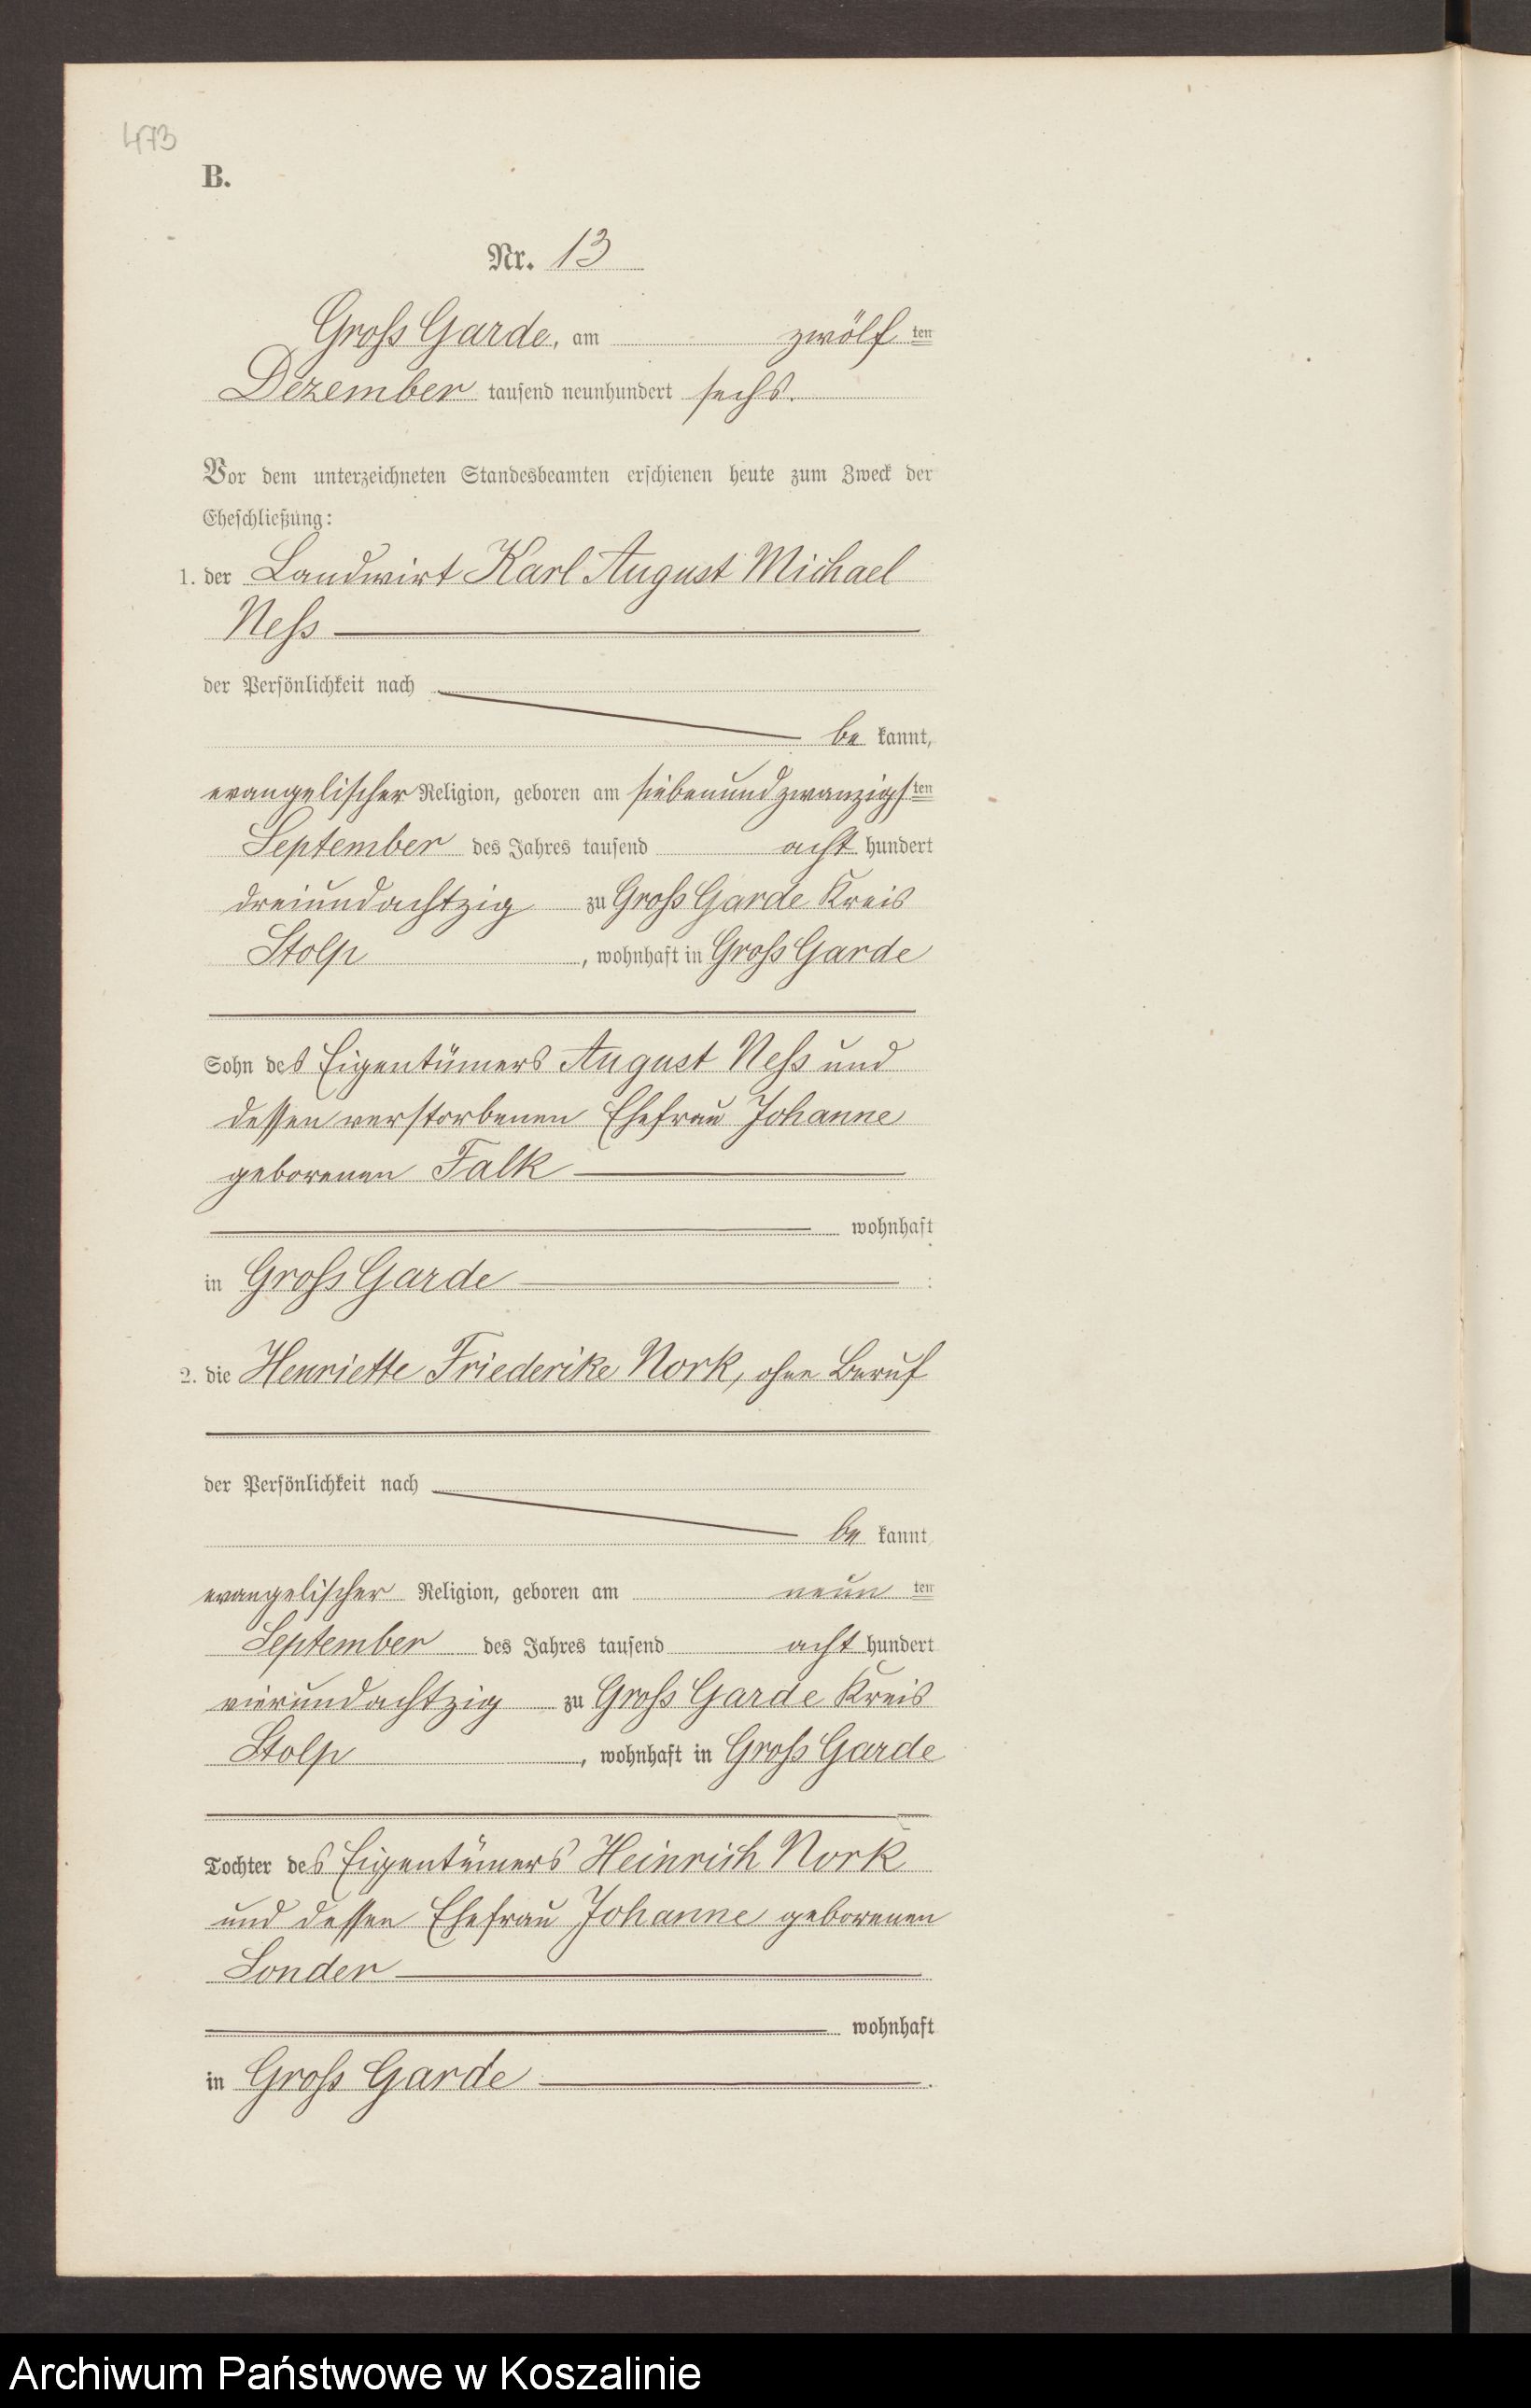 473
B.
Nr. 13
Groß Garde, am zwölf ten
Dezember tausend neunhundert sechs.
Vor dem unterzeichneten Standesbeamten erschienen heute zum Zweck der
Eheschließung:
1. der Landwirt Karl August Michael
Neß
der Persönlichkeit nach
be kannt,
evangelischer Religion, geboren am siebenundzwanzigs ten
September des Jahres tausend acht hundert
dreiundachtzig zu Groß Garde Kreis
Stolp, wohnhaft in Groß Garde
Sohn des Eigentümers August Neß und
dessen verstorbenen Ehefrau Johanne
geborenen Falk
wohnhaft
in Groß Garde :
2. die Henriette Friederike Nork, ohne Beruf
der Persönlichkeit nach
be kannt,
evangelischer Religion, geboren am neun ten
September des Jahres tausend acht hundert
vierundachtzig zu Groß Garde Kreis
Stolp, wohnhaft in Groß Garde
Tochter des Eigentümers Heinrich Nork
und dessen Ehefrau Johanne geborenen
Sonder
wohnhaft
in Groß Garde.
Archiwum Państwowe w Koszalinie